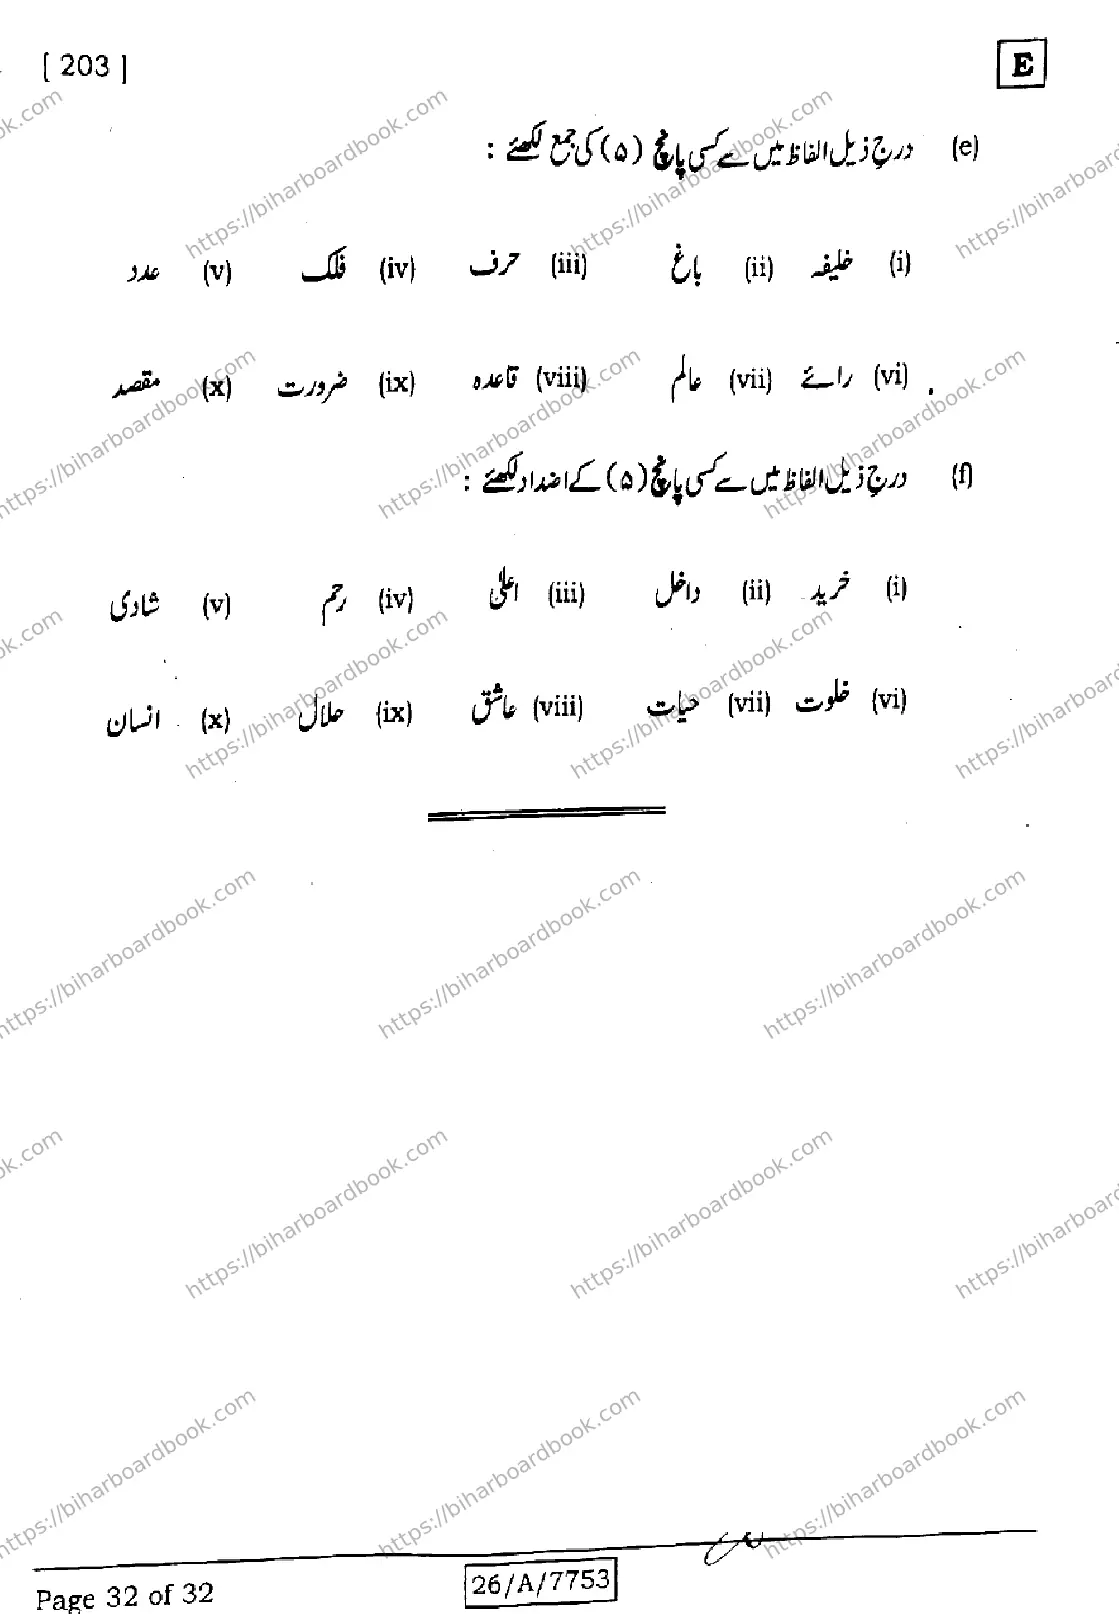 [ 203 ] E
(e) درج ذیل الفاظ میں سے کسی پانچ (۵) کی جمع لکھئے :
(i) خلیفہ (ii) باغ (iii) حرف (iv) فلک (v) عدد
(vi) رائے (vii) عالم (viii) قاعدہ (ix) ضرورت (x) مقصد
(f) درج ذیل الفاظ میں سے کسی پانچ (۵) کے اضداد لکھئے :
(i) خرید (ii) داخل (iii) اعلیٰ (iv) رحم (v) شادی
(vi) خلوت (vii) حیات (viii) عاشق (ix) حلال (x) انسان
Page 32 of 32 26/A/7753
https://biharboardbook.com